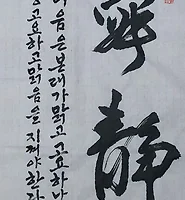 寧靜
음은 본래가 맑고 고요하나
고요하고 맑음을 지켜야 한다